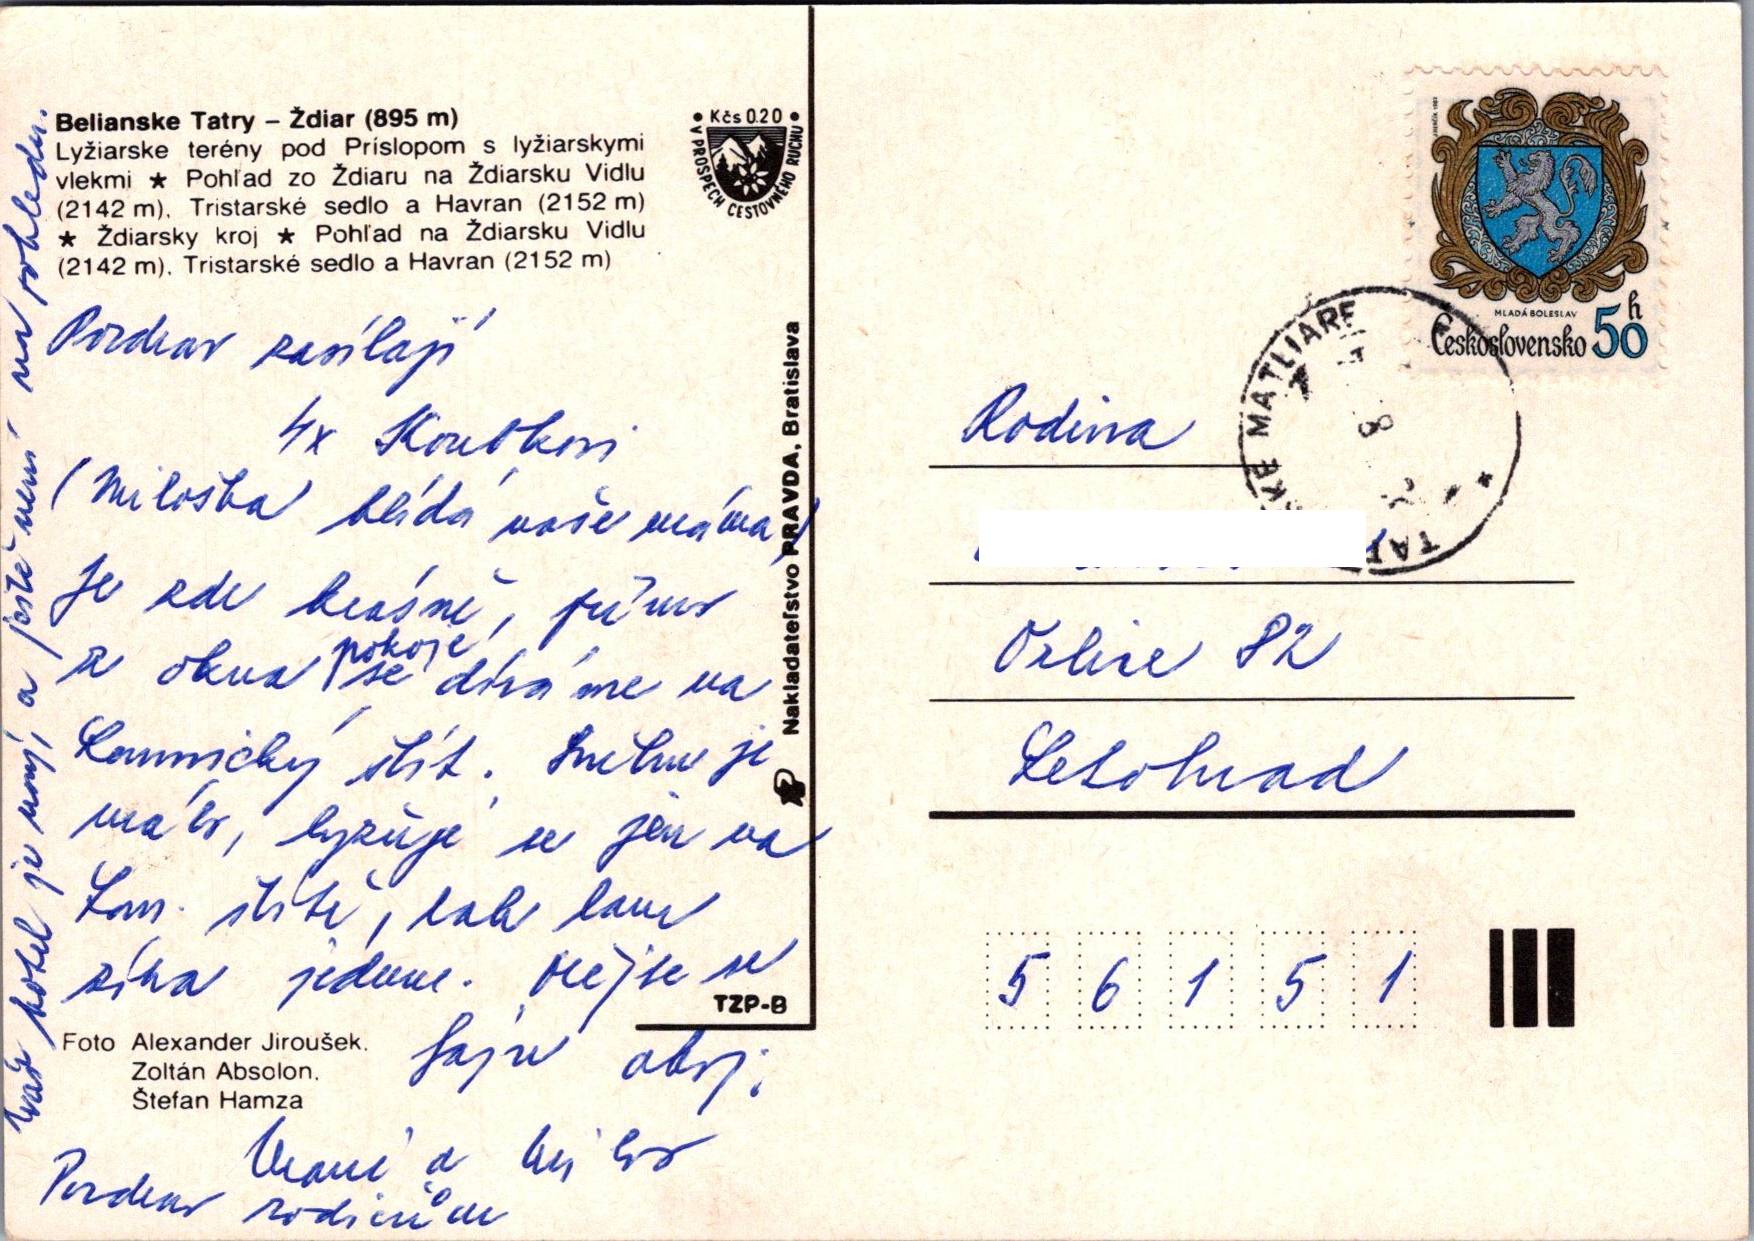 Belianske Tatry – Ždiar (895 m)
Lyžiarske terény pod Príslopom s lyžiarskymi
vlekmi ★ Pohľad zo Ždiaru na Ždiarsku Vidlu
(2142 m), Tristarské sedlo a Havran (2152 m)
★ Ždiarsky kroj ★ Pohľad na Ždiarsku Vidlu
(2142 m), Tristarské sedlo a Havran (2152 m)
• Kčs 0.20 •
V PROSPECH CESTOVNÉHO RUCHU
Pozdrav zasílají
4x Koubkovi
(Miloška hlídá naše máma)
Je zde krásně, přímo
z okna pokoje se díváme na
Lomnický štít. Sněhu je
málo, lyžuje se jen na
Lom. štítě, tak tam
zítra jedeme. Mějte se
fajn
Pozdrav rodičům
náš hotel je nový a ještě není na pohledu.
Nakladateľstvo PRAVDA, Bratislava
TZP-B
Foto Alexander Jiroušek,
Zoltán Absolon,
Štefan Hamza
MLADÁ BOLESLAV
Československo 50 h
MATLIARE
8
Rodina
Orlice 82
Letohrad
56151